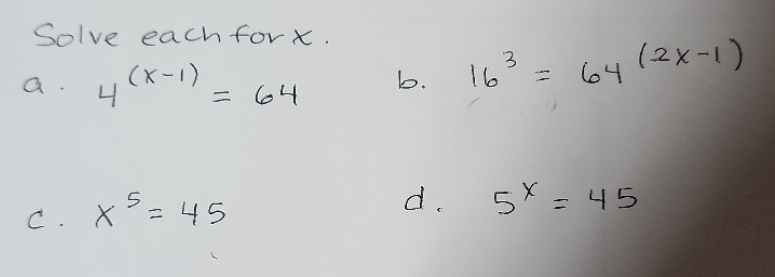 Solve each for x.
a. 4^(x-1) = 64
b. 16^3 = 64^(2x-1)
c. x^5 = 45
d. 5^x = 45